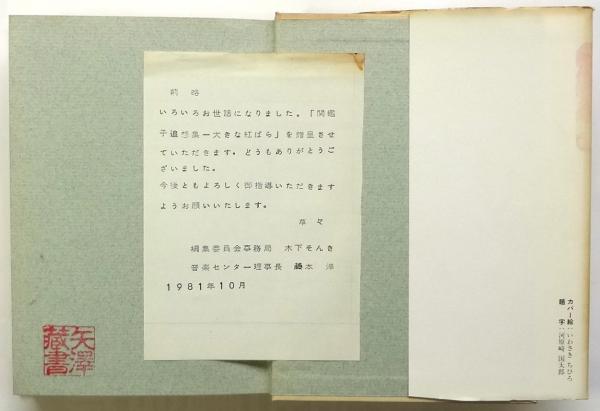 前略
いろいろお世話になりました。「関鑑
子追想集一大きな紅ばら」を贈呈させ
ていただきます。どうもありがとうご
ざいました。
今後ともよろしく御指導いただきます
ようお願いいたします。
草々
編集委員会事務局 木下そんき
音楽センター理事長 藤本 洋
1981年10月
矢澤
蔵書
カバー絵……いわさき ちひろ
題 字……河原崎 国太郎